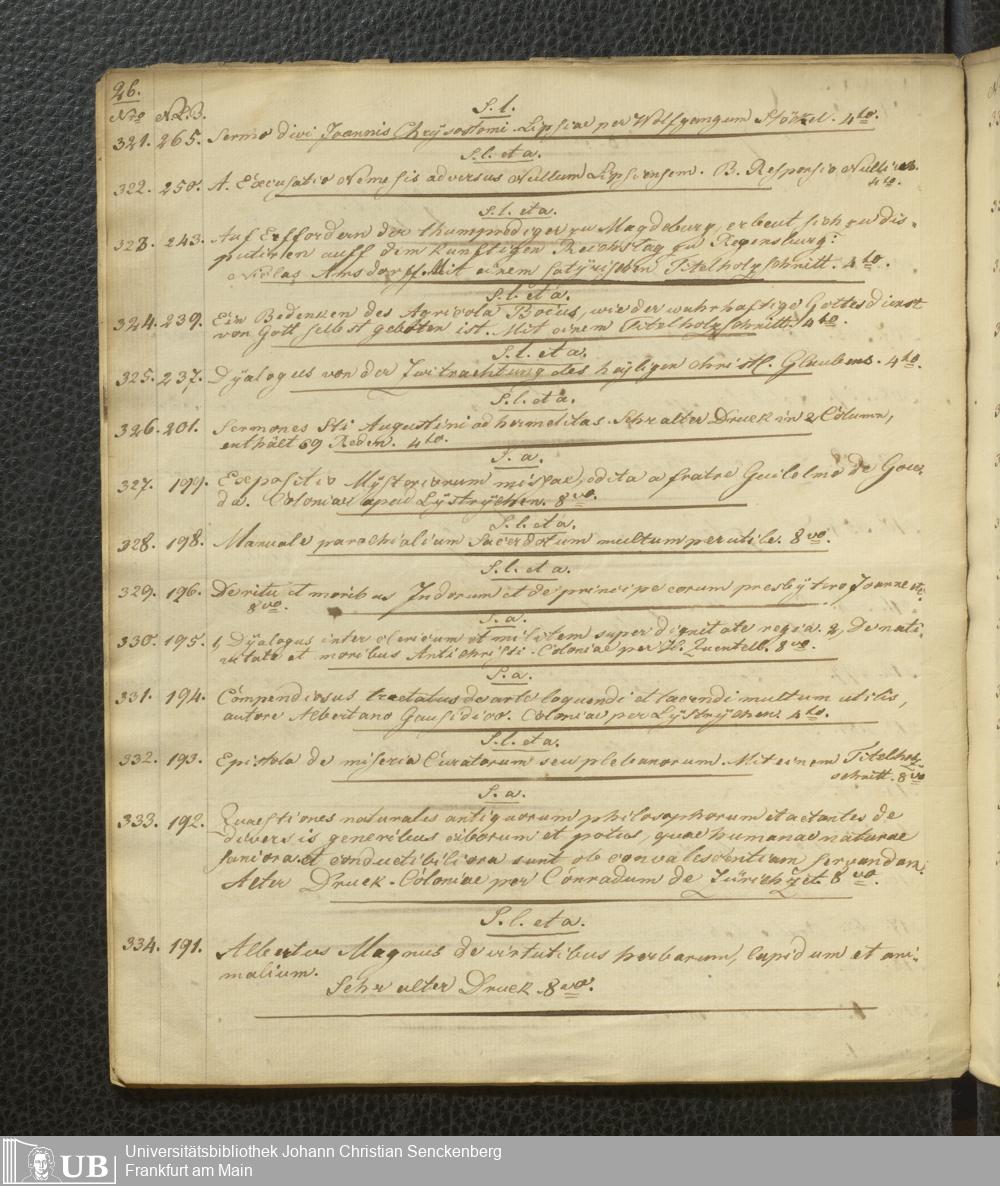 26.
Nro N.B.
S. l.
321. 265. Sermo divi Joannis Chrÿsostomi Lipsiae per Wolfgangum Stökel. 4to.
S. l. et a.
322. 250. A. Excusatio Nemesis adversus Nullum Lipsiensem. B. Responsio Nulli etc.
4to.
S. l. et a.
323. 243. Auf Erffordern der thumprediger zu Magdeburg, erbeut sich zu dis-
putirien auff dem kunftigen Reichstag zu Regensburg:
Niclas Amsdorff. Mit einem satÿrischen Titelholzschnitt. 4to.
S. l. et a.
324. 239. Ein Bedenken des Agricola Boeus, wie der wahrhaftige Gottesdienst
von Gott selbst geboten ist. Mit einem Titelholzschnitt. 4to.
S. l. et a.
325. 237. Dÿalogus von der Zwitrachtung des heÿligen christl. Glaubens. 4to.
S. l. et a.
326. 201. Sermones Sti Augustini ad hermeitas. Sehr alter Druck in 2 Column,
enthält 69 Reden. 4to.
S. a.
327. 199. Expositio Mÿsteriorum missae, edita a fratre Guilelmo de Gou-
da. Coloniae apud Lÿstrÿchen. 8vo.
S. l. et a.
328. 198. Manuale parochialium Sacerdotum multum perutile. 8vo.
S. l. et a.
329. 196. De ritu et moribus Indorum et de principe eorum presbÿtero Joanne etc.
8vo.
S. a.
330. 195. 1, Dÿalogus inter clericum et militem super dignitate regia. 2, De nati-
vitate et moribus Antichristi. Coloniae per H. Quentell. 8vo.
S. a.
331. 194. Compendiosus tractatus de arte loquendi et tacendi multum utilis,
autore Albertano Causidico. Coloniae per Lÿstrÿchen. 4to.
S. l. et a.
332. 193. Epistola de miseria Curatorum seu plebanorum. Mit einem Titelholz-
schnitt. 8vo
S. a.
333. 192. Quaestiones naturales antiquorum philosophorum tractantes de
diversis generibus ciborum et potus, quae humanae naturae
saniora et conductibiliora sunt ob convalescentiam servandam.
Alter Druck. Coloniae per Conradum de Zürichzet. 8vo.
S. l. et a.
334. 191. Albertus Magnus de virtutibus herbarum, lapidum et ani-
malium.
Sehr alter Druck. 8vo.
UB
Universitätsbibliothek Johann Christian Senckenberg
Frankfurt am Main